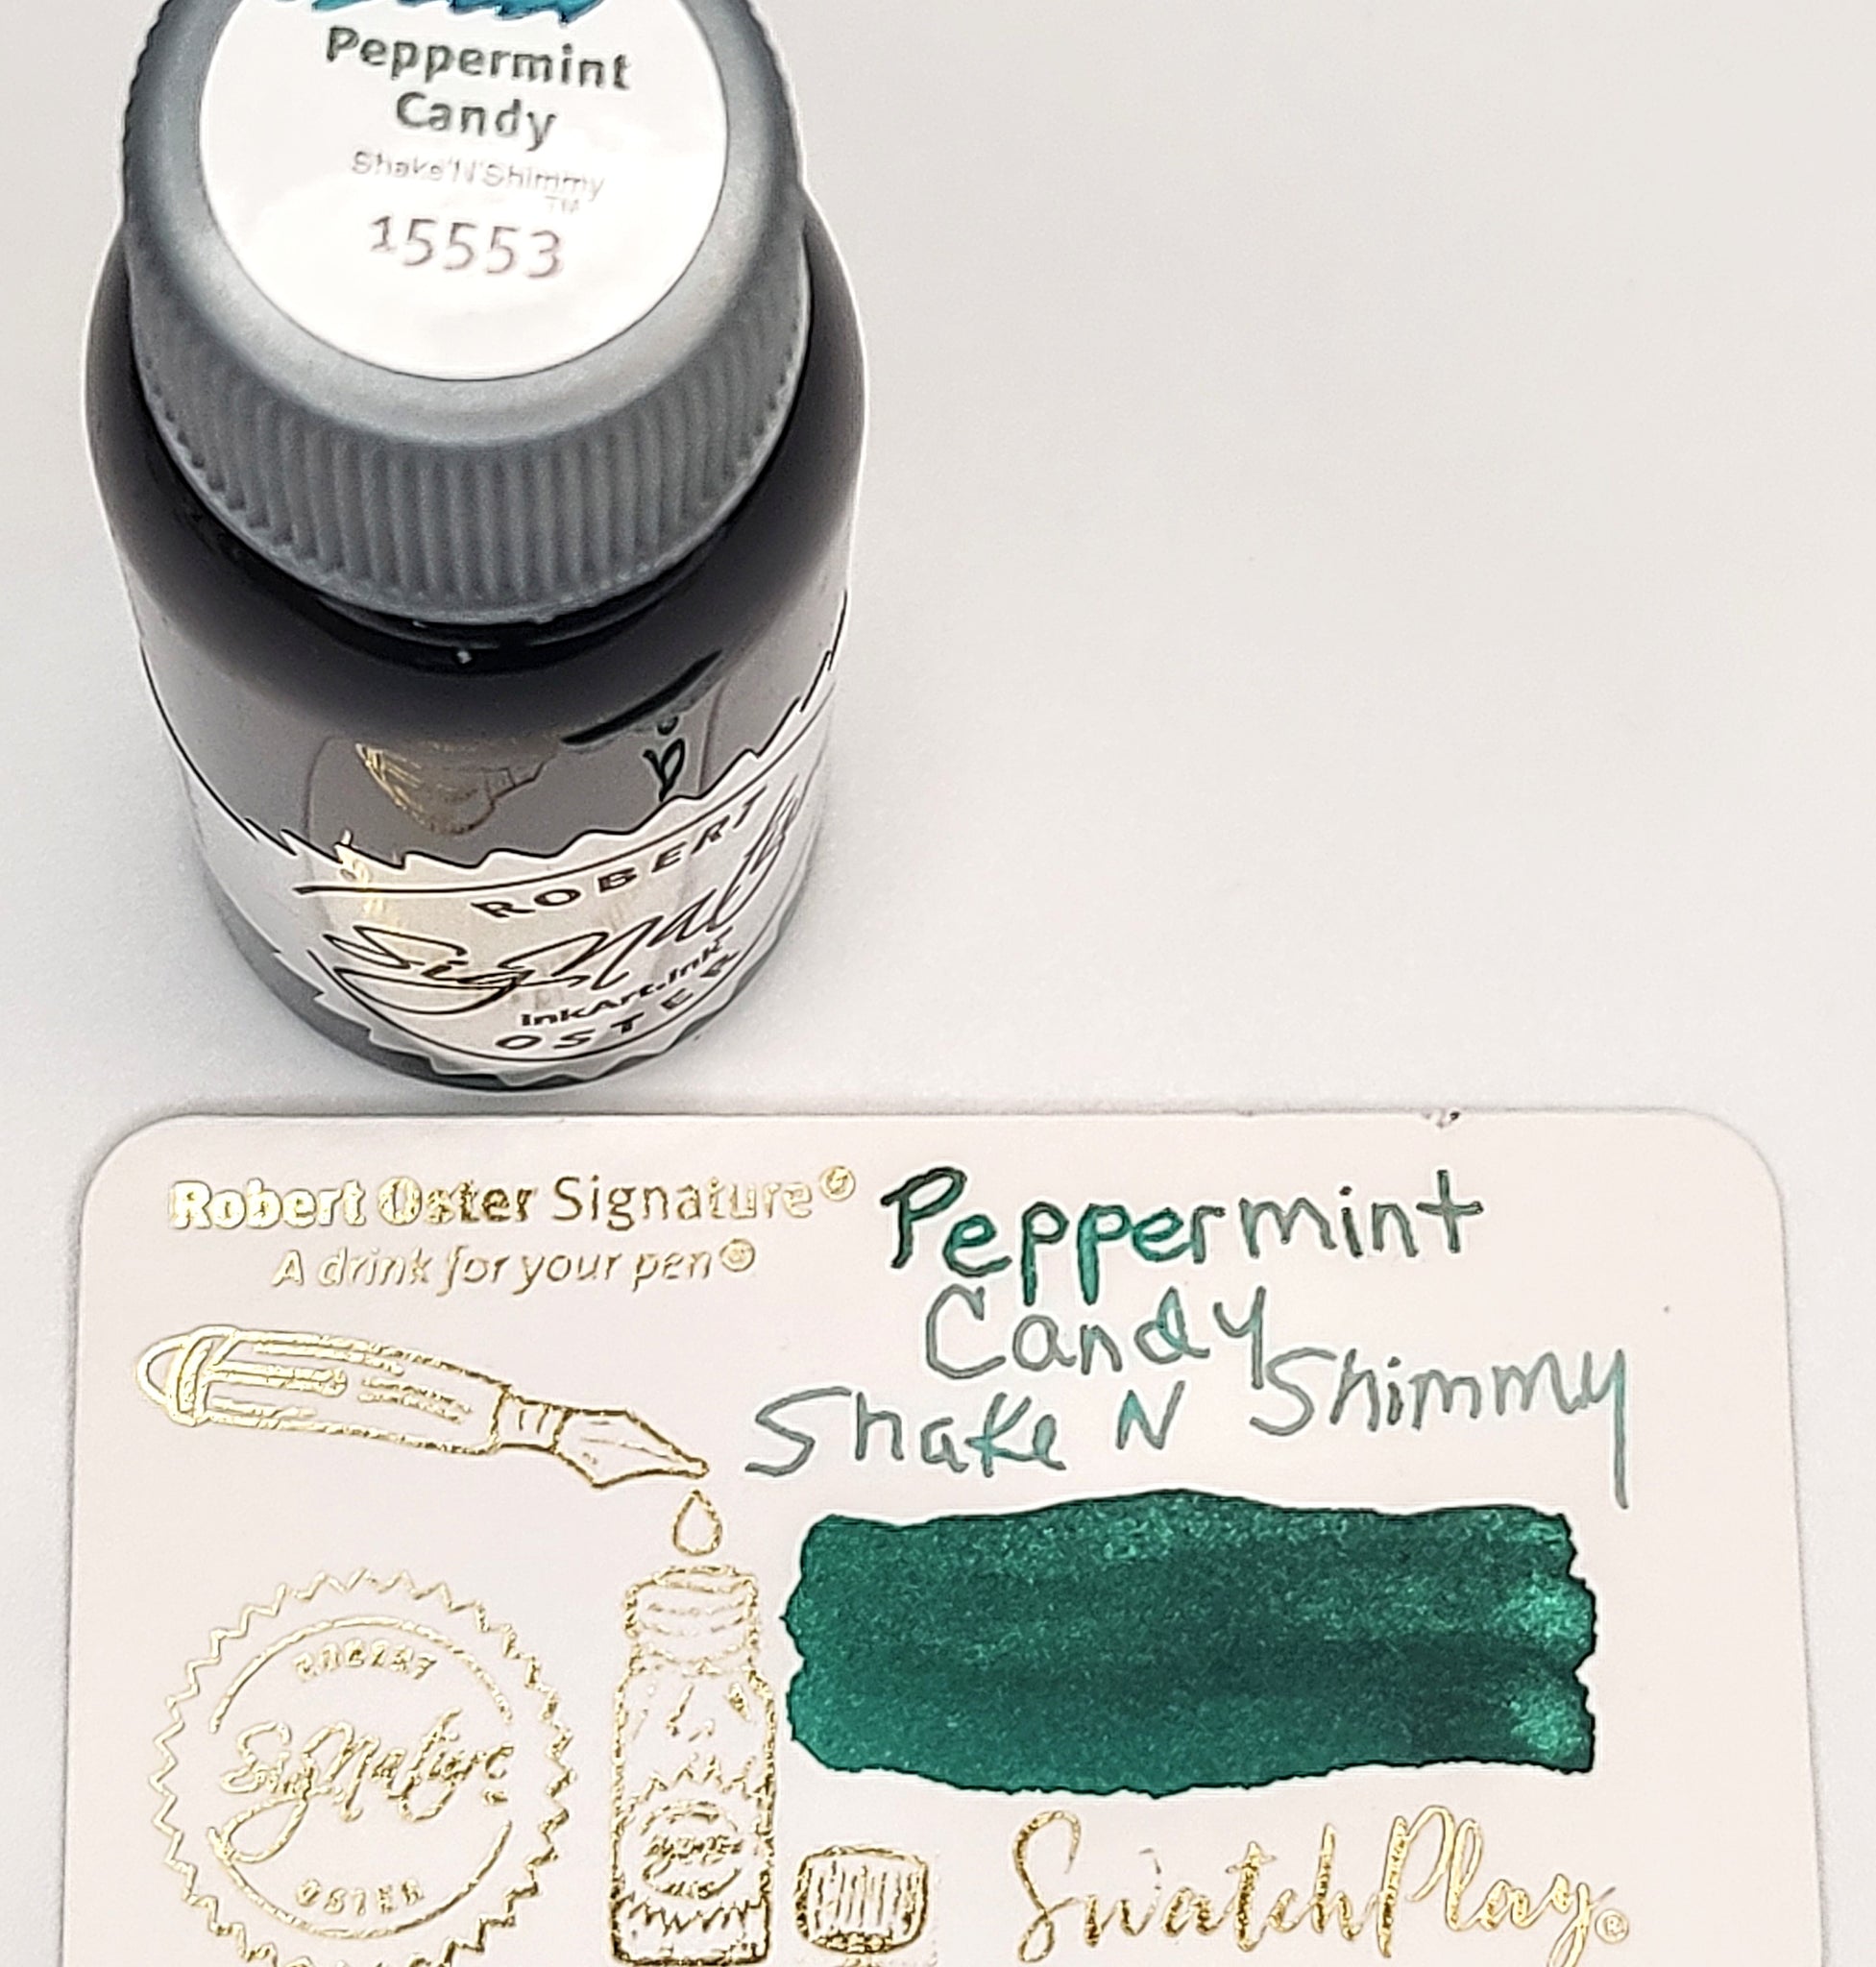 Peppermint
Candy
Shake'N'Shimmy
TM
15553
ROBERT
Signature
InkArt.Ink
OSTER
Robert Oster Signature®
A drink for your pen®
Peppermint
Candy
Shake N Shimmy
ROBERT
Signature
OSTER
SwatchPlay®